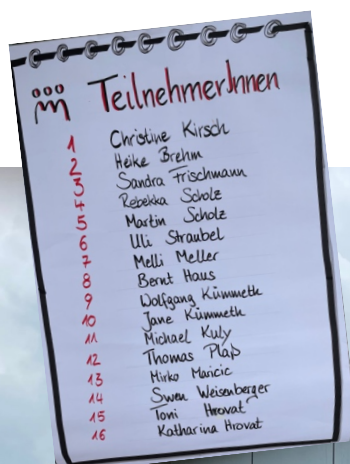 TeilnehmerInnen
1 Christine Kirsch
2 Heike Brehm
3 Sandra Frischmann
4 Rebekka Scholz
5 Martin Scholz
6 Uli Straubel
7 Melli Meller
8 Bernt Haus
9 Wolfgang Kümmeth
10 Jane Kümmeth
11 Michael Kuly
12 Thomas Plaß
13 Mirko Maricic
14 Swen Weisenberger
15 Toni Hrovat
16 Katharina Hrovat